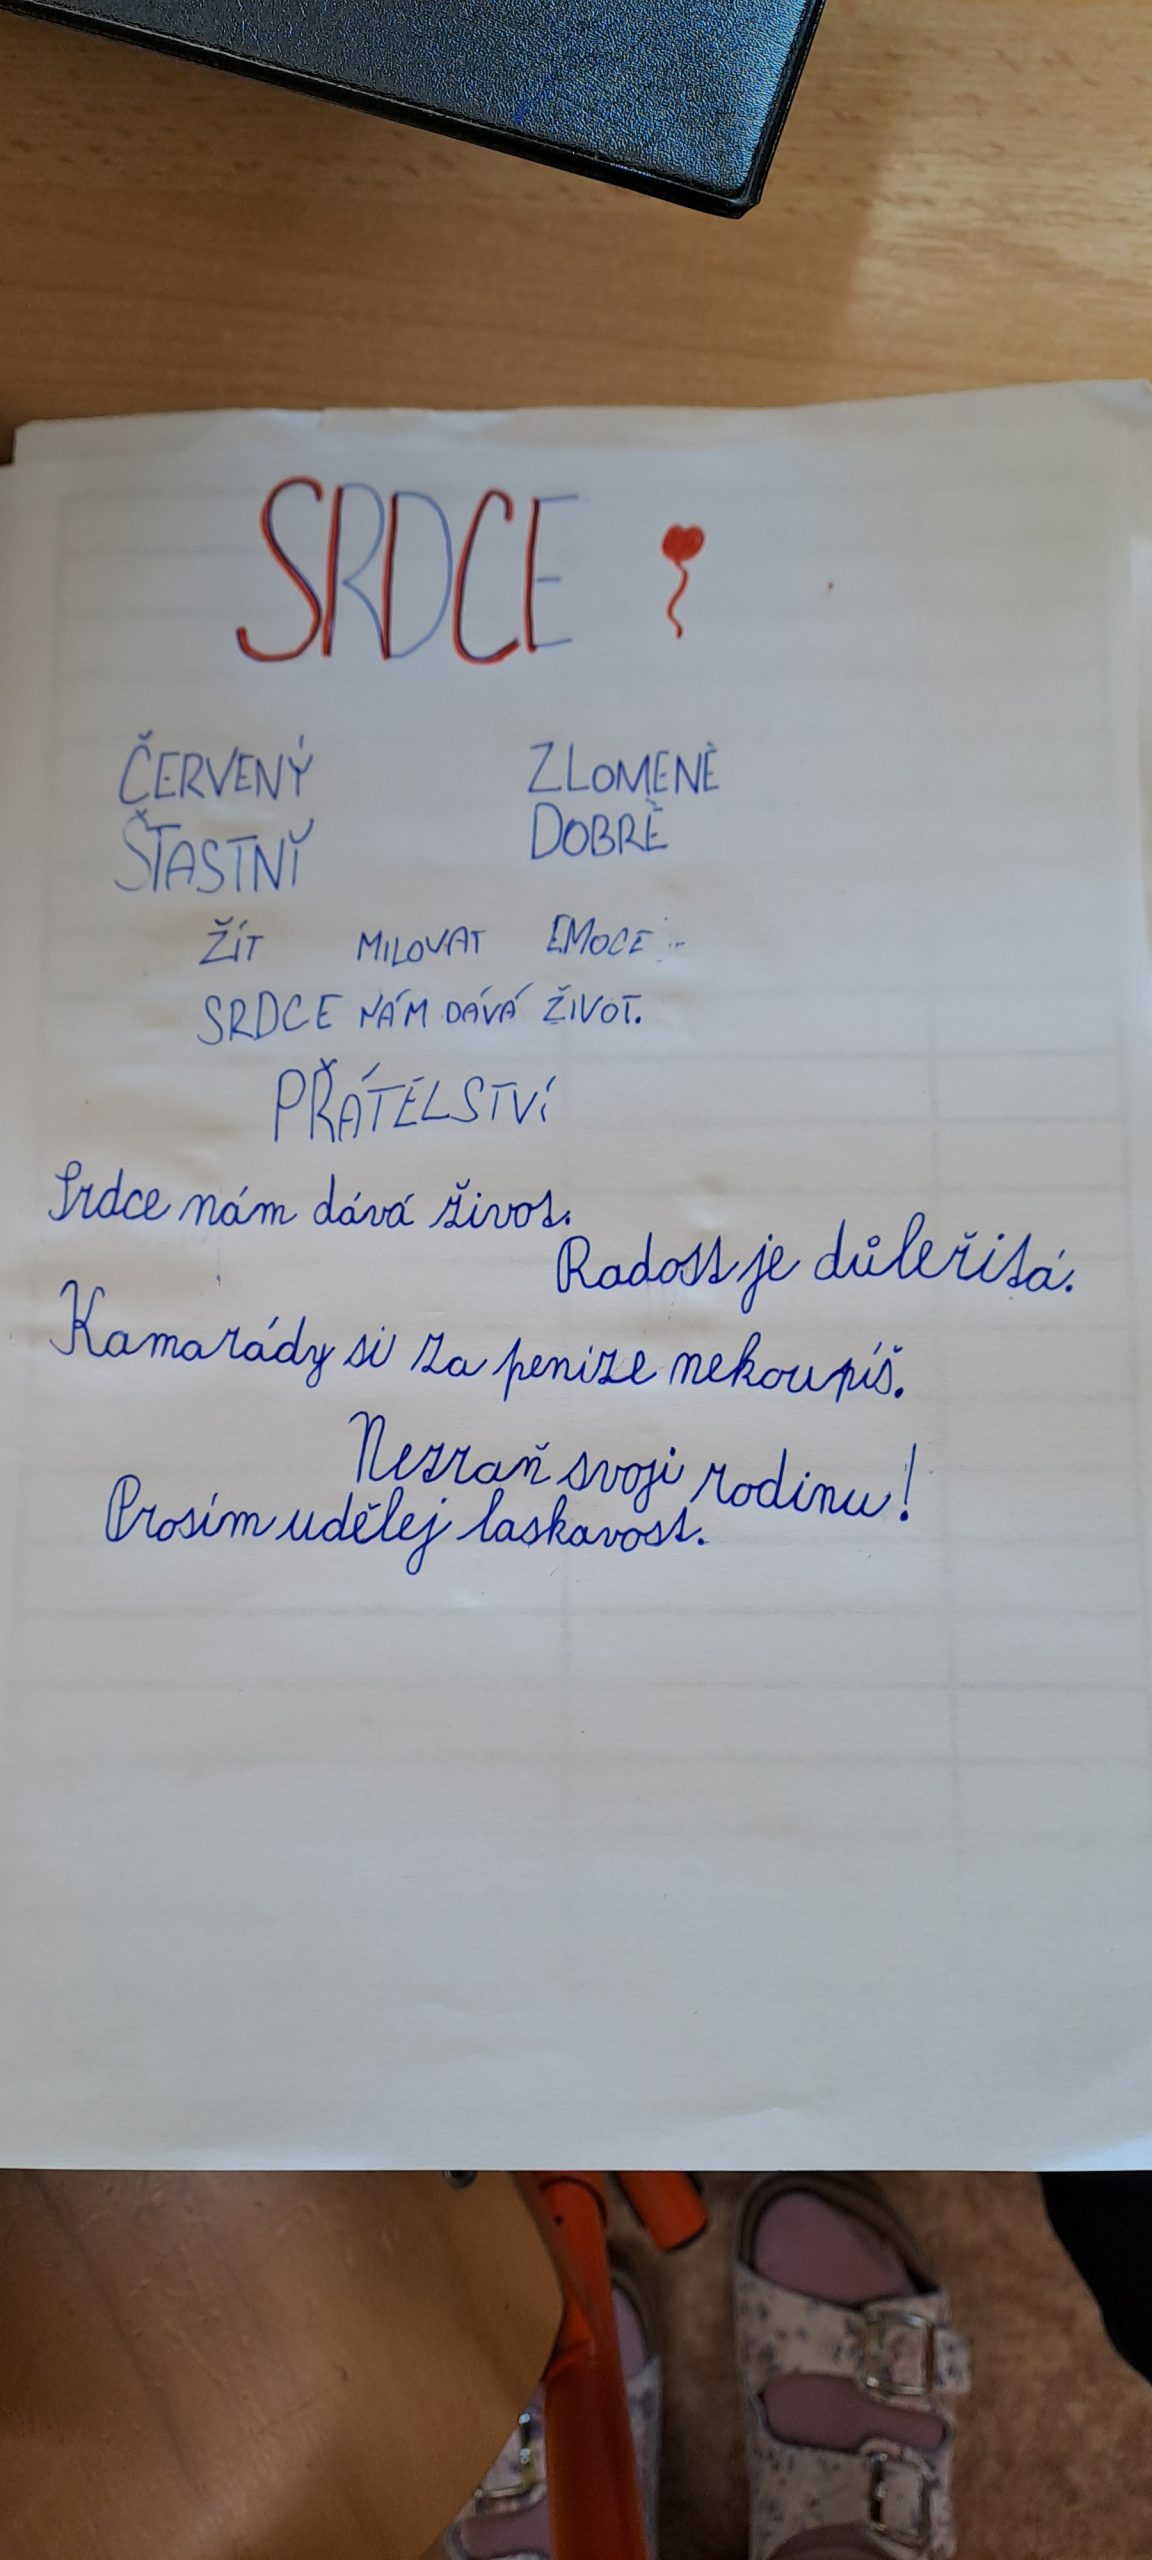 SRDCE
ČERVENÝ ZLOMENÉ
ŠŤASTNÍ DOBRÉ
ŽÍT MILOVAT EMOCE...
SRDCE NÁM DÁVÁ ŽIVOT.
PŘÁTELSTVÍ
Srdce nám dává život.
Radost je důležitá.
Kamarády si za penize nekoupíš.
Nezraň svoji rodinu!
Prosím udělej laskavost.